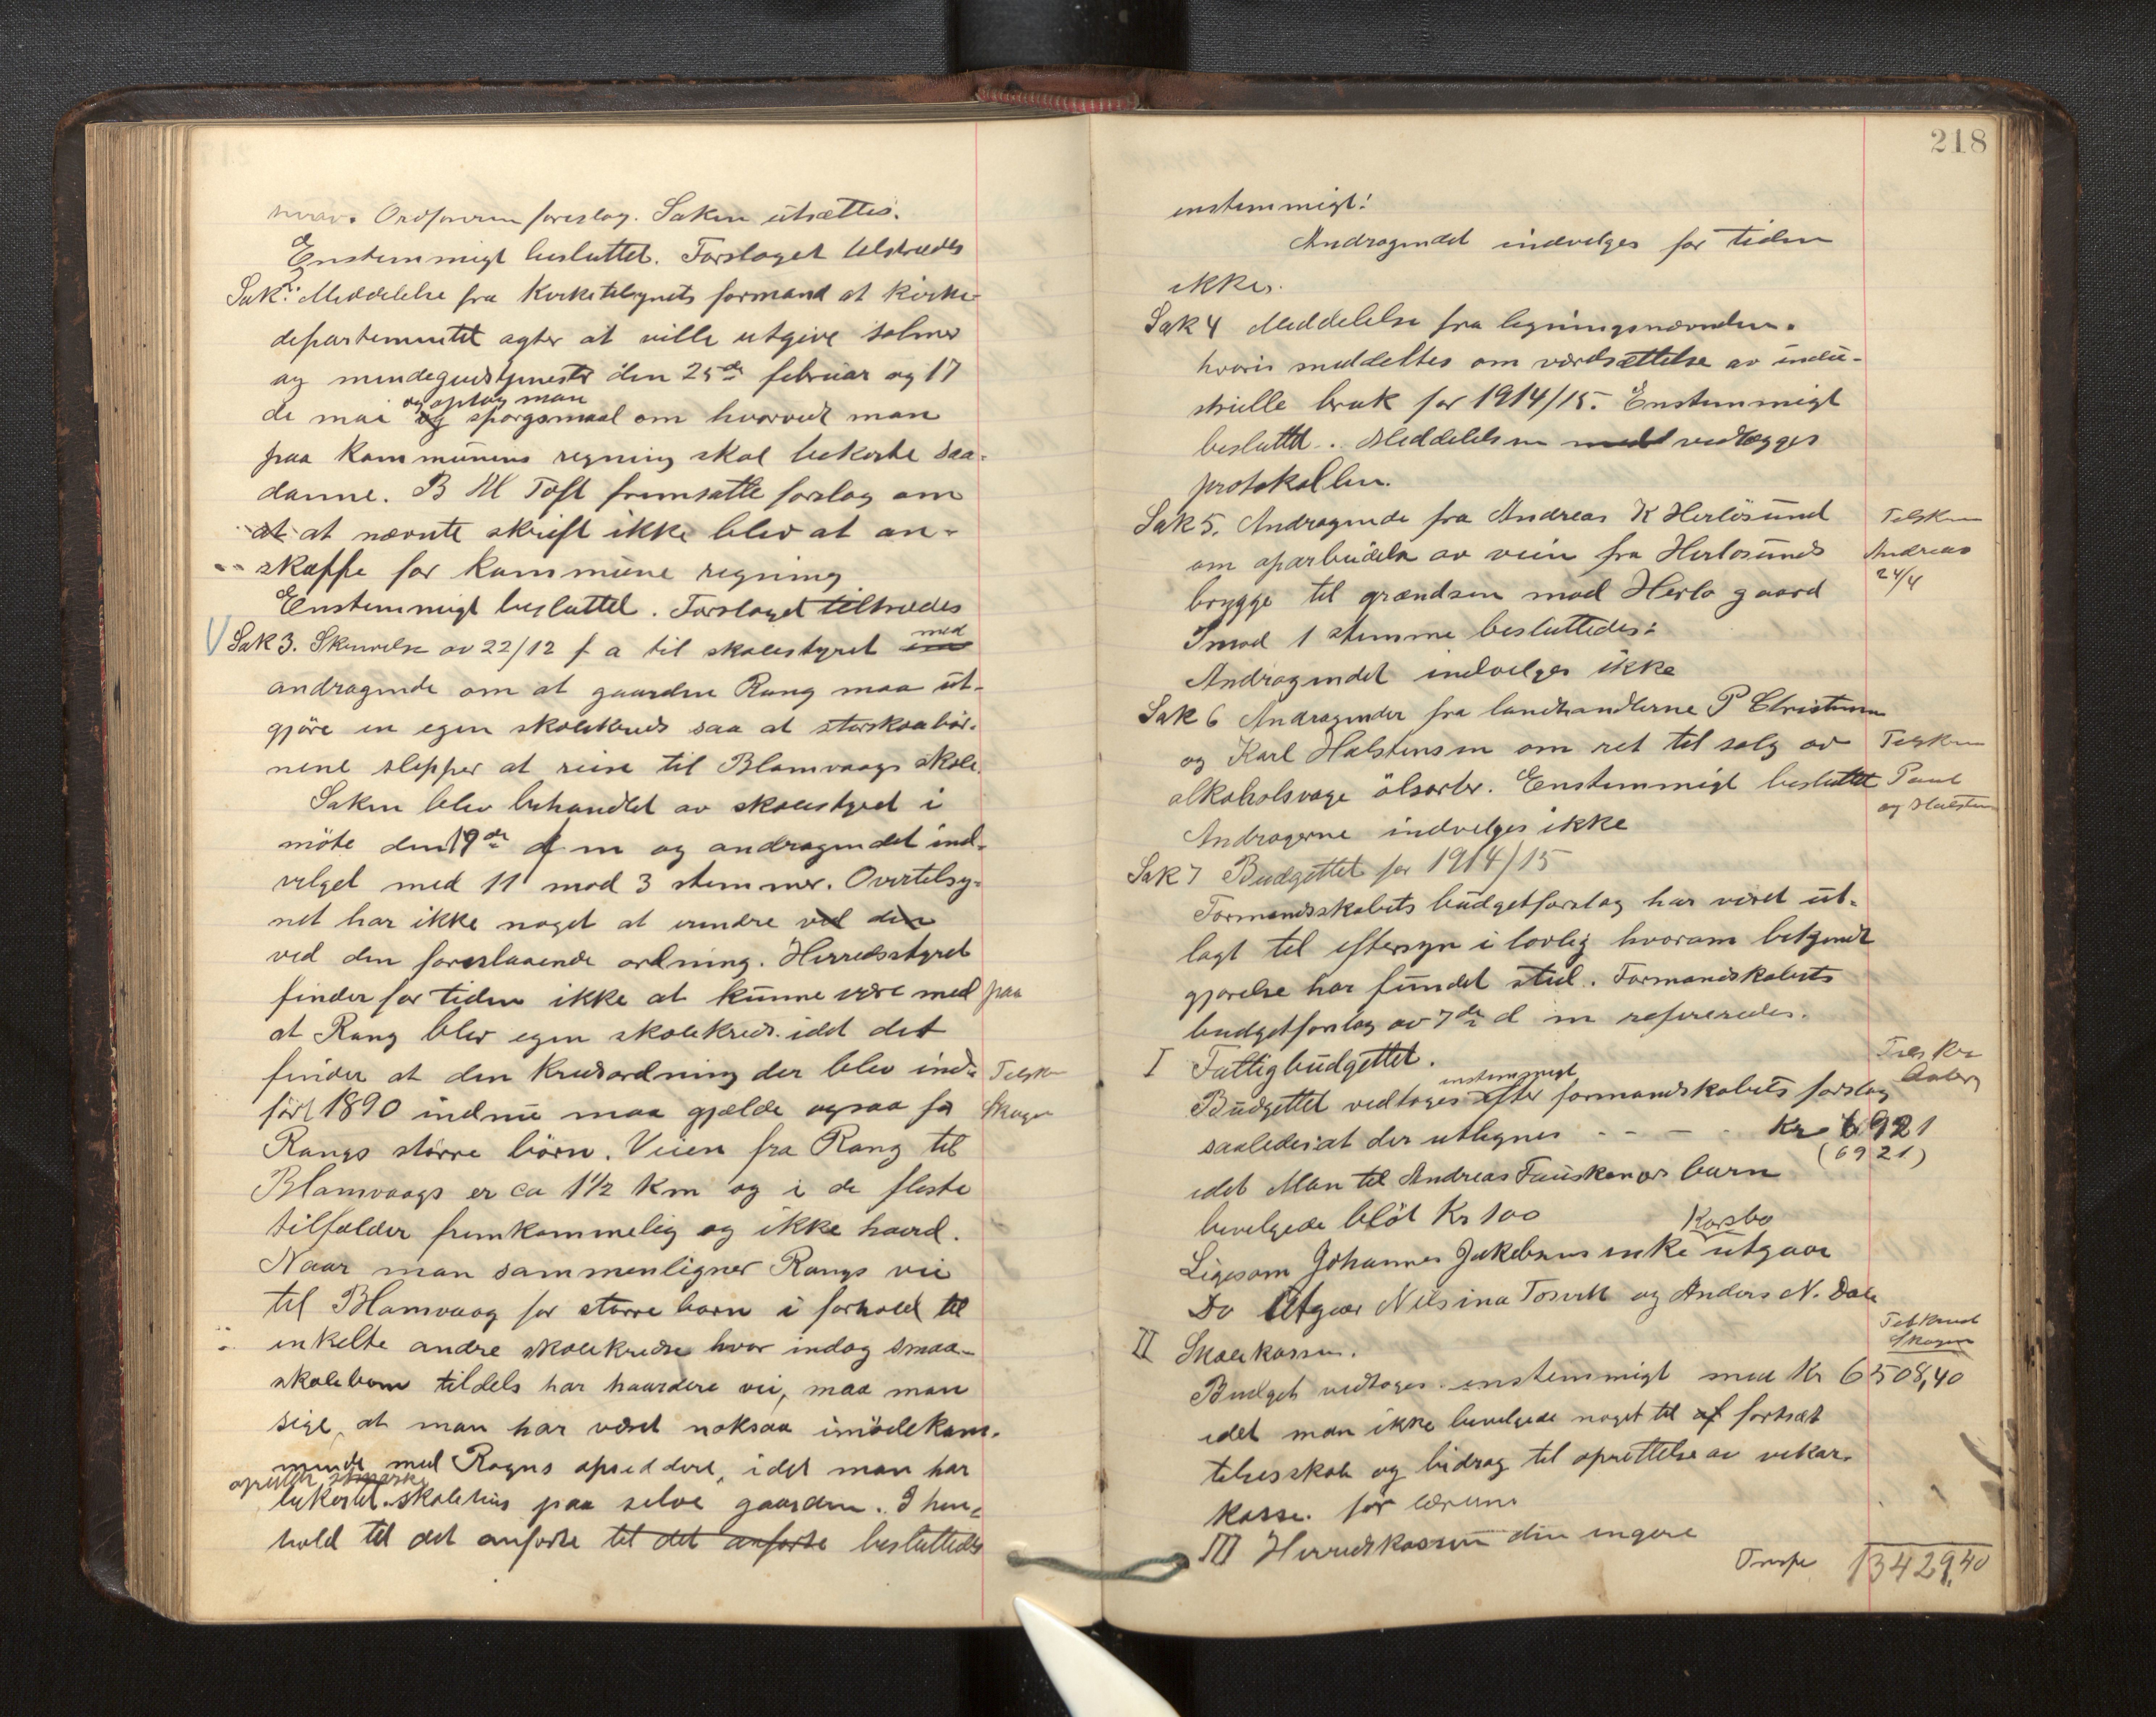 svar. Ordføreren foreslog. Saken utsættes.
Enstemmigt besluttet. Forslaget tilstrædes
Sak 2: Meddelelse fra Kirketilsynets formand at kirke-
departementet agter at ville utgive salmer
og mindegudstjenester den 25de februar og 17
de mai og optog man spørgsmaal om hvorvidt man
paa kommunens regning skal bekoste saa-
danne. B M Toft fremsatte forslag om
at at nævnte skrift ikke blev at an-
skaffe for kommune regning
Enstemmigt besluttet. Forslaget tiltrædes
Sak 3. Skrivelse av 22/12 f a til skolestyret med
andragende om at gaarden Rang maa ut-
gjöre en egen skolekreds saa at storskolebör-
nene slepper at reise til Blomvaags skole.
Saken blev behandlet av skolestyret i
möte den 19de d m og andragendet ind-
velget med 11 mod 3 stemmer. Overtilsy-
net har ikke noget at erindre ved den
ved den foreslaaende ordning. Herredsstyret
finder for tiden ikke at kunne være med paa
at Rang blev egen skolekreds idet det
finder at den kredsordning der blev ind-
ført 1890 endnu maa gjælde ogsaa for
Rangs större börn. Veien fra Rang til
Blomvaags er ca 1½ km og i de fleste
tilfælder fremkommelig og ikke haard.
Naar man sammenligner Rangs vei
til Blomvaag for större barn i forhold til
enkelte andre skolekredse hvor indog smaa-
skolebarn tildels har haardere vei, maa man
sige, at man har været noksaa imödekom-
mende med Rangs opsiddere, idet man har
bekostet skolehus paa selve gaarden. I hen-
hold til det anförte til det anförte besluttedes
Telskr
Skogen
218
enstemmigt:
Andragendet indvelges for tiden
ikke.
Sak 4 Meddelelse fra ligningsnævnden.
hvori meddeltes om værdsættelse av indu-
strielle bruk for 1914/15. Enstemmigt
besluttet. Meddelelsen vedlægges
protokollen.
Sak 5. Andragende fra Andreas K Herlösund
om oparbeidelse av veien fra Herlösunds
brygge til grændsen mod Herlo gaard
Imod 1 stemme besluttedes:
Andragendet indvelges ikke
Andreas
24/4
Sak 6 Andragender fra landhandlerne P Christensen
og Karl Halstensen om ret til salg av
alkoholsvage ölsorter. Enstemmigt besluttet
Andragerne indvelges ikke
Sak 7 Budgettet for 1914/15
Formandsskabets budgetforslag har været ut-
lagt til eftersyn i lovlig hvorom bekjendt
gjørelse har fundet sted. Formandskabets
budgetforslag av 7de d m refereredes.
I Fattigbudgettet.
Budgettet vedtages enstemmigt efter formandskabets forslag
saaledes at der utlignes - - - - Kr 6921
(6921)
idet Man til Andreas Fauskanger barn
bevelgede blöt Kr 100
Ligesom Johannes Jakobsens enke Korsbø utgaar
Do Utgaar Nilsina Tosvik og Anders N. Dale
II Skolekassen.
Budget vedtages enstemmigt med Kr 6508,40
idet man ikke bevelgede noget til fortsæt
telsesskole og bidrag til oprettelse av vikar-
kasse. for lærerne
III Herredskassen den engere
Transp 13429,40